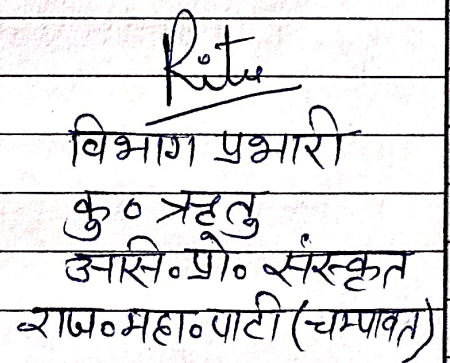 Ritu
विभाग प्रभारी
कु० ऋतु
असि०प्रो० संस्कृत
राज०महा०पाटी (चम्पावत)